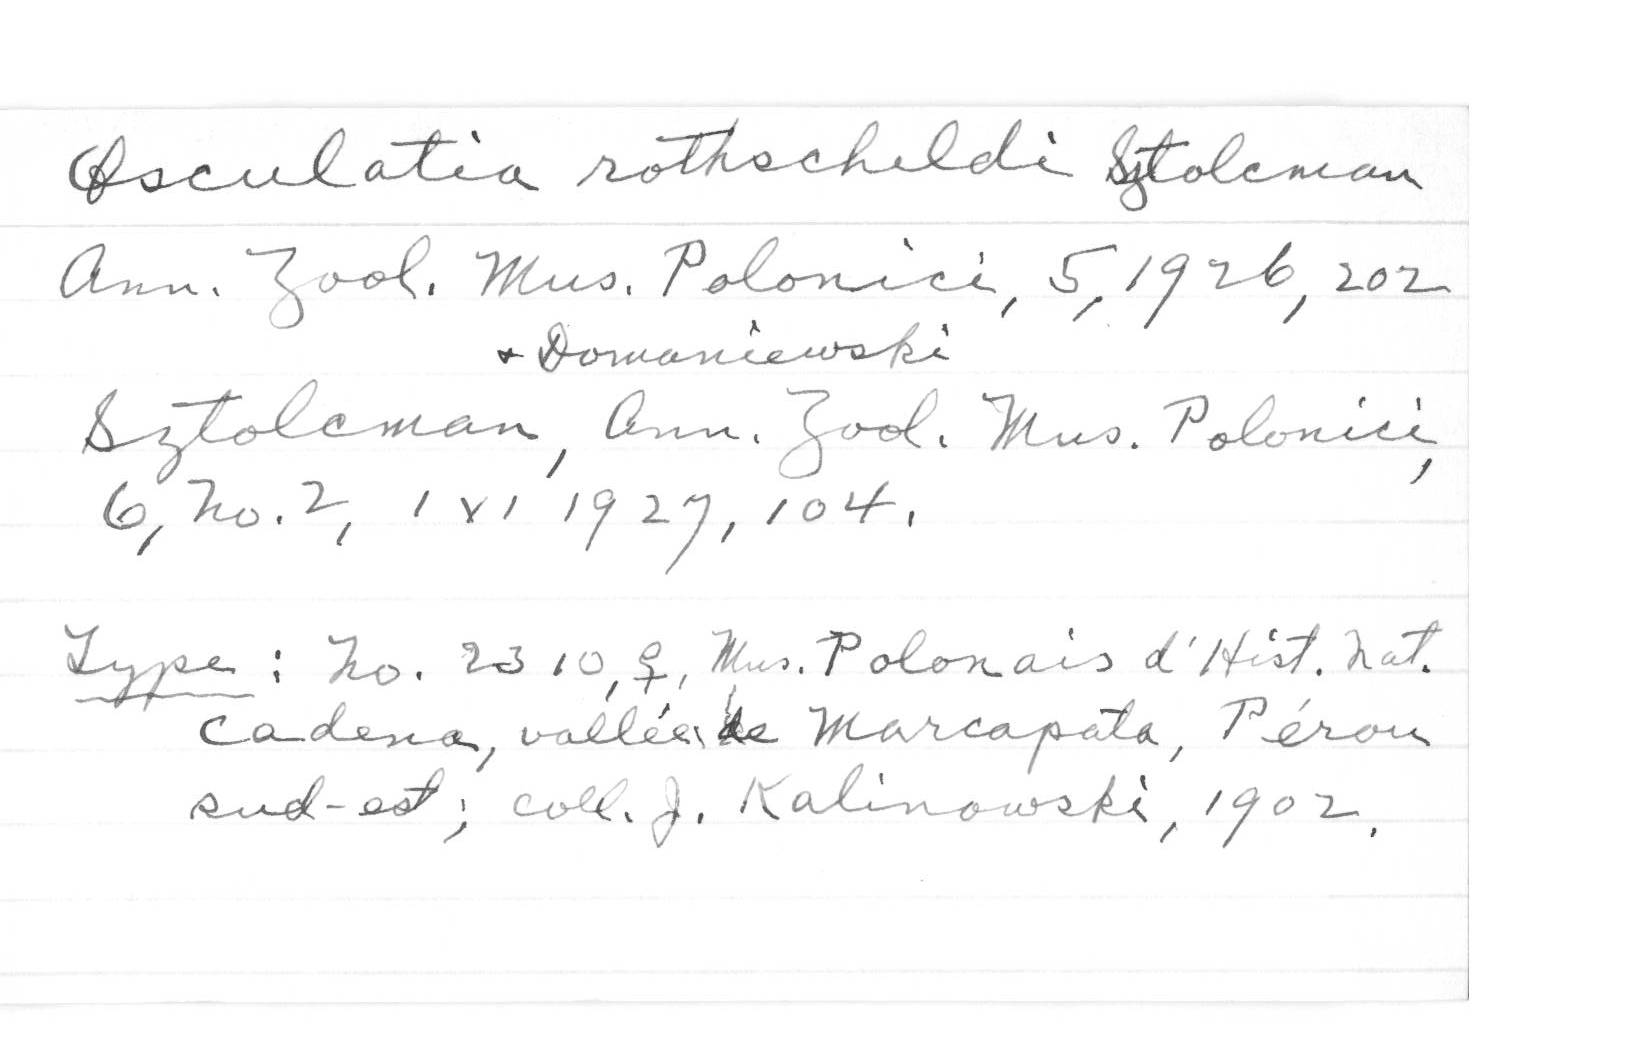 Osculatia rothschildi Sztolcman
Ann. Zool. Mus. Polonici, 5, 1926, 202
+ Domaniewski
Sztolcman, Ann. Zool. Mus. Polonici,
6, No. 2, 1 VI 1927, 104.
Type: No. 2310, ♀, Mus. Polonais d'Hist. Nat.
Cadena, vallée de Marcapata, Pérou
sud-est; coll. J. Kalinowski, 1902.